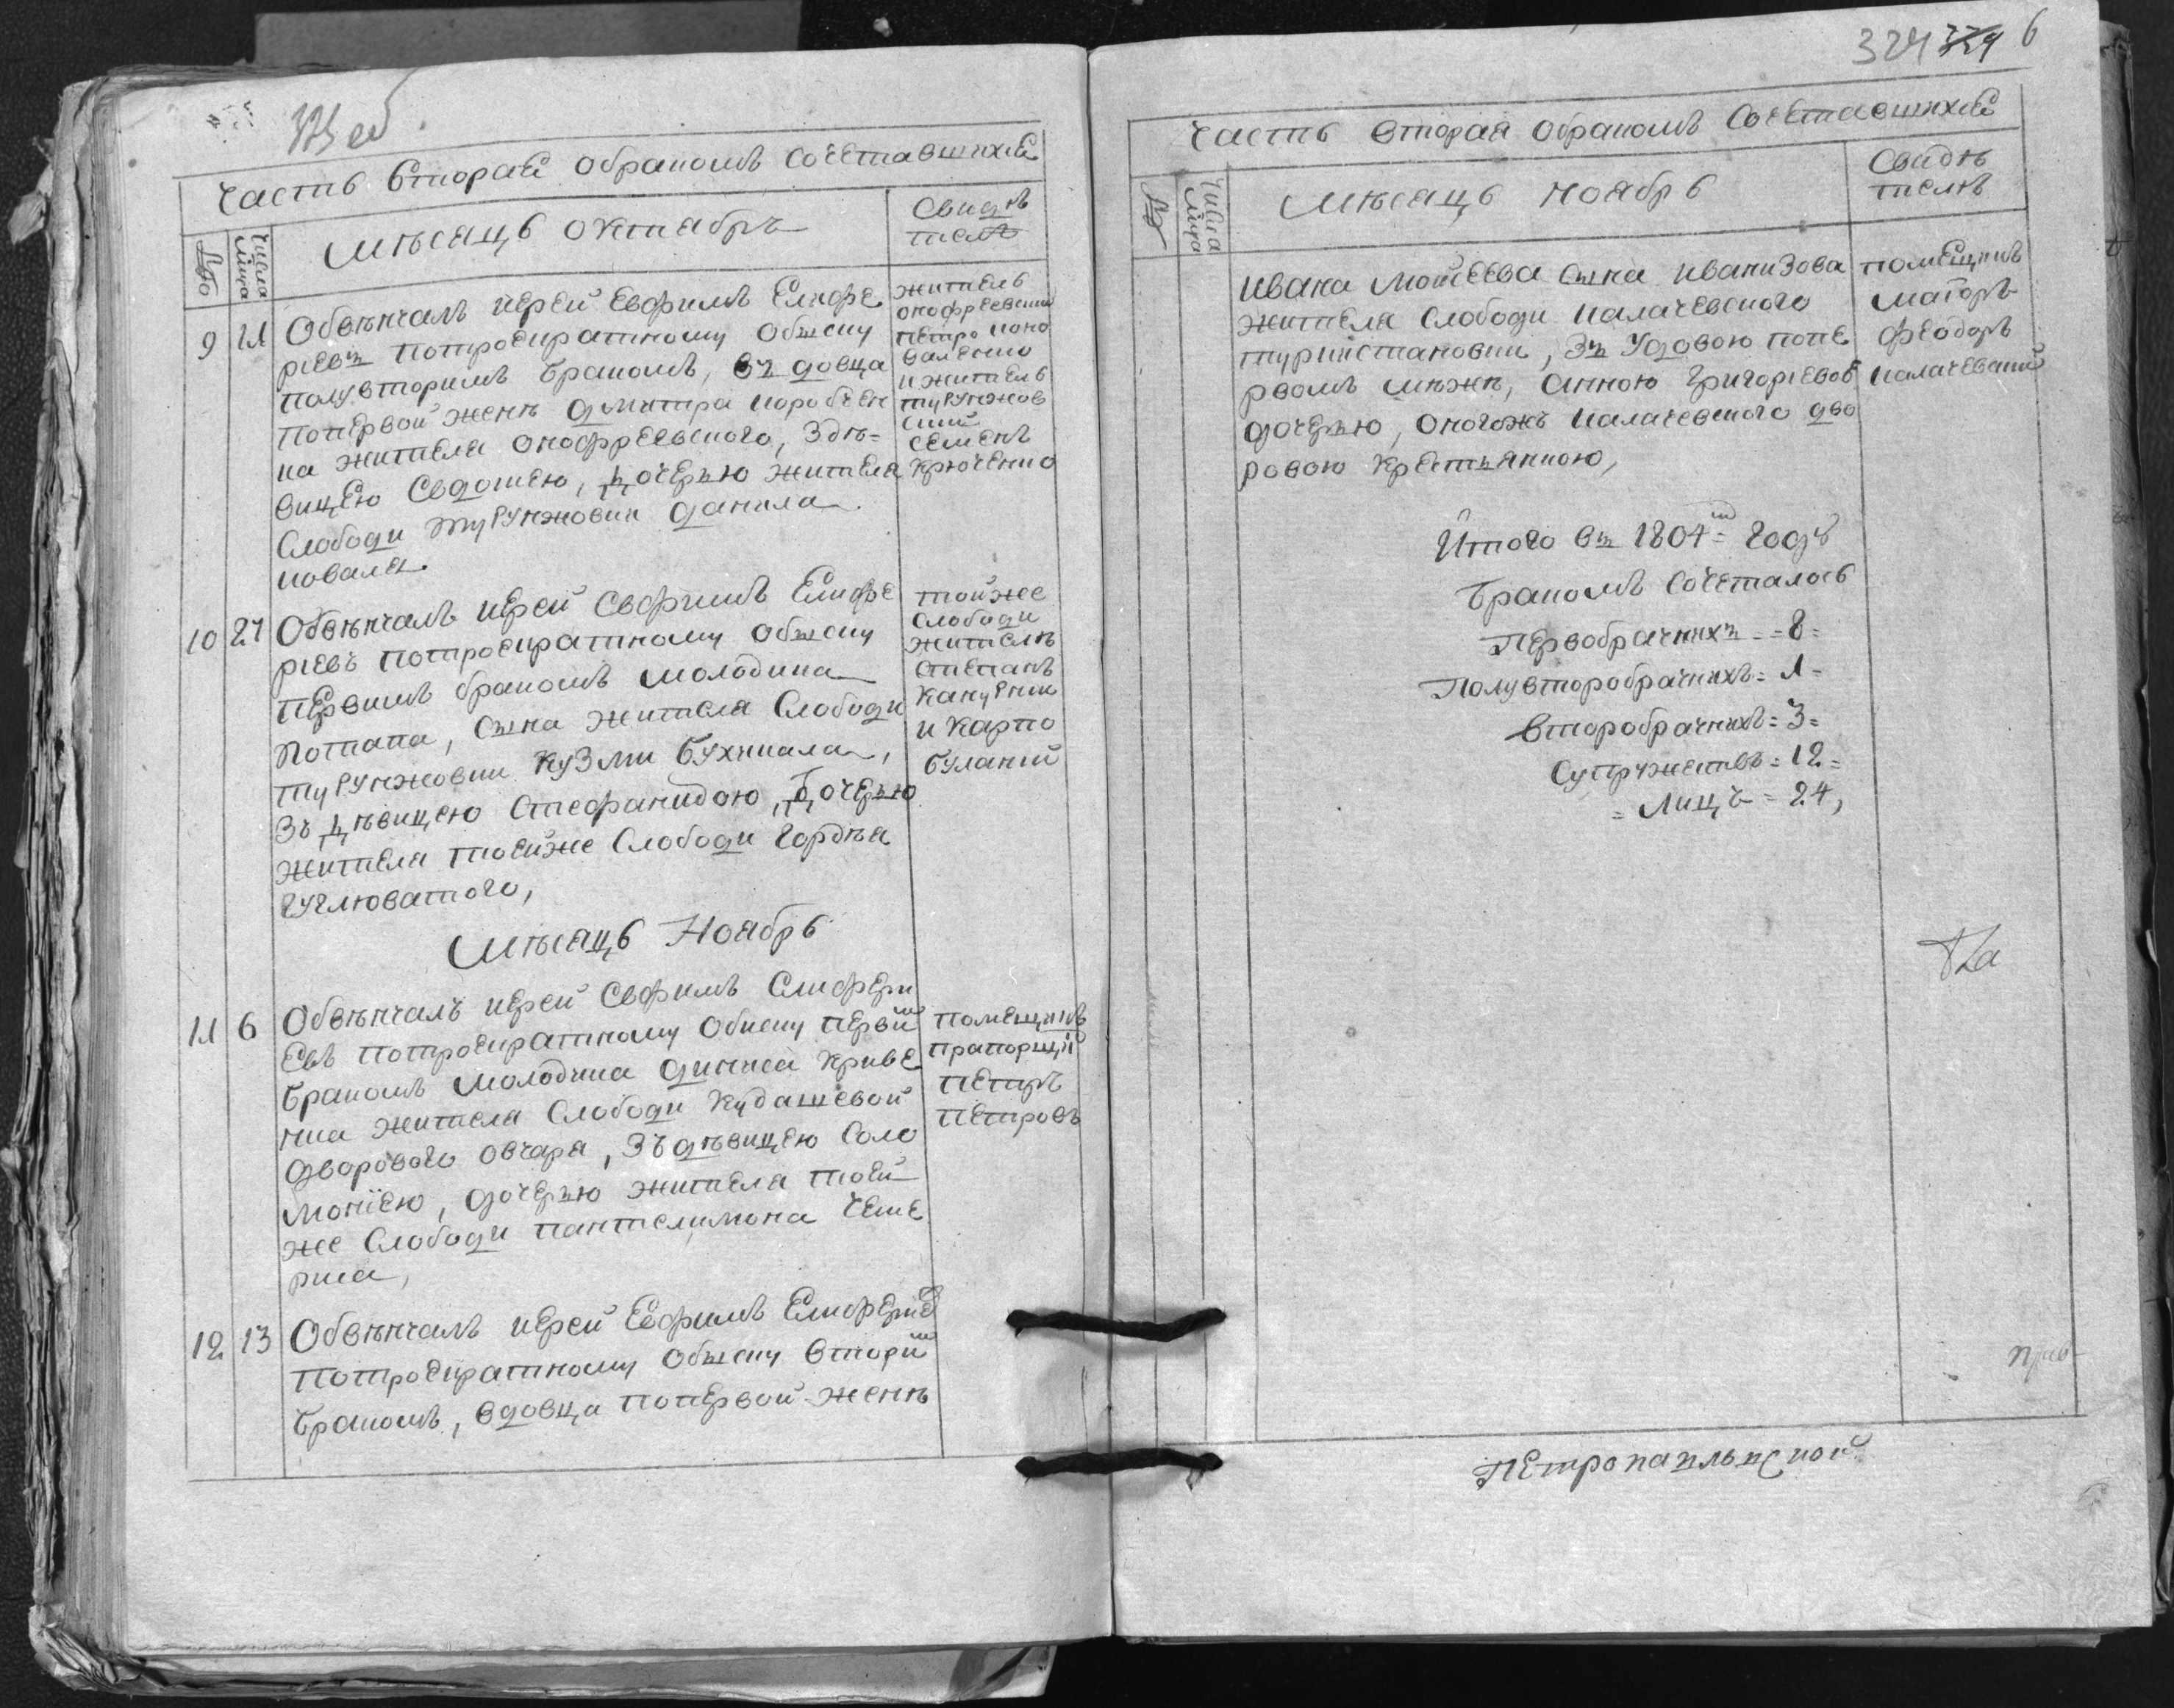 Часть вторая обракомъ сочетавшихся
№ Числа мца
Мѣсяць октябръ
Свидѣ
телѣ
9 11 Обвѣнчалъ иерей Евфимъ Елефе
риевъ потроекратному обыску
полувторимъ бракомъ, въ довца
попервой женѣ дмитра коробчен
ка жителя онофреевского, здѣ=
вицею Евдокею, дочерью жителя
Слободи тургунжовки данила
ковала
житель
онофреевский
петро коно
валенко
и житель
тургунжов
ский
семенъ
крюченко
10 27 Обвѣнчалъ иерей Евфимъ Елефе
риевъ потроекратному обыску
первимъ бракомъ молодика
потапа, сына жителя Слободи
тургунжовки кузми бухикала,
зъ дѣвицею Стефанидою, дочерью
жителя тоейже Слободи гордѣя
гуглюватого,
тойже
слободи
жителѣ
степанъ
капурник
и карпо
буланий
Мѣсяць Ноябрь
11 6 Обвѣнчалъ иерей Евфимъ Елефери
евъ потроекратному обиску первим
бракомъ молодика диниса криве
нка жителя Слободи кудашевой
дворового овчаря, зъ дѣвицею Соло
мониею, дочерью жителя тоей
же Слободи пантелимона чеме
риса,
помещикъ
прапорщик
петръ
петровъ
12 13 Обвѣнчалъ иерей Евфимъ Елефериев
потроекратному обыску вторим
бракомъ, вдовца попервой женѣ
324 324 6
Часть вторая обракомъ сочетавшихся
№ Числа мца
Мѣсяць ноябрь
Свидѣ
телѣ
ивана Моисеева сына иванизова
жителя слободи калачевского
туркистановки, зъ удовою попе
рвомъ мѣжѣ, анною григориевою
дочерью, оногожъ калачевского дво
ровою крестьянкою,
помещикъ
маиоръ
феодоръ
калачевский
Итого въ 1804м годѣ
бракомъ сочеталось
Первобрачнихъ = 8 =
Полувторобрачнихъ = 1 =
второбрачнихъ = 3 =
супружествъ = 12 =
= лицъ = 24,
Петропавловской